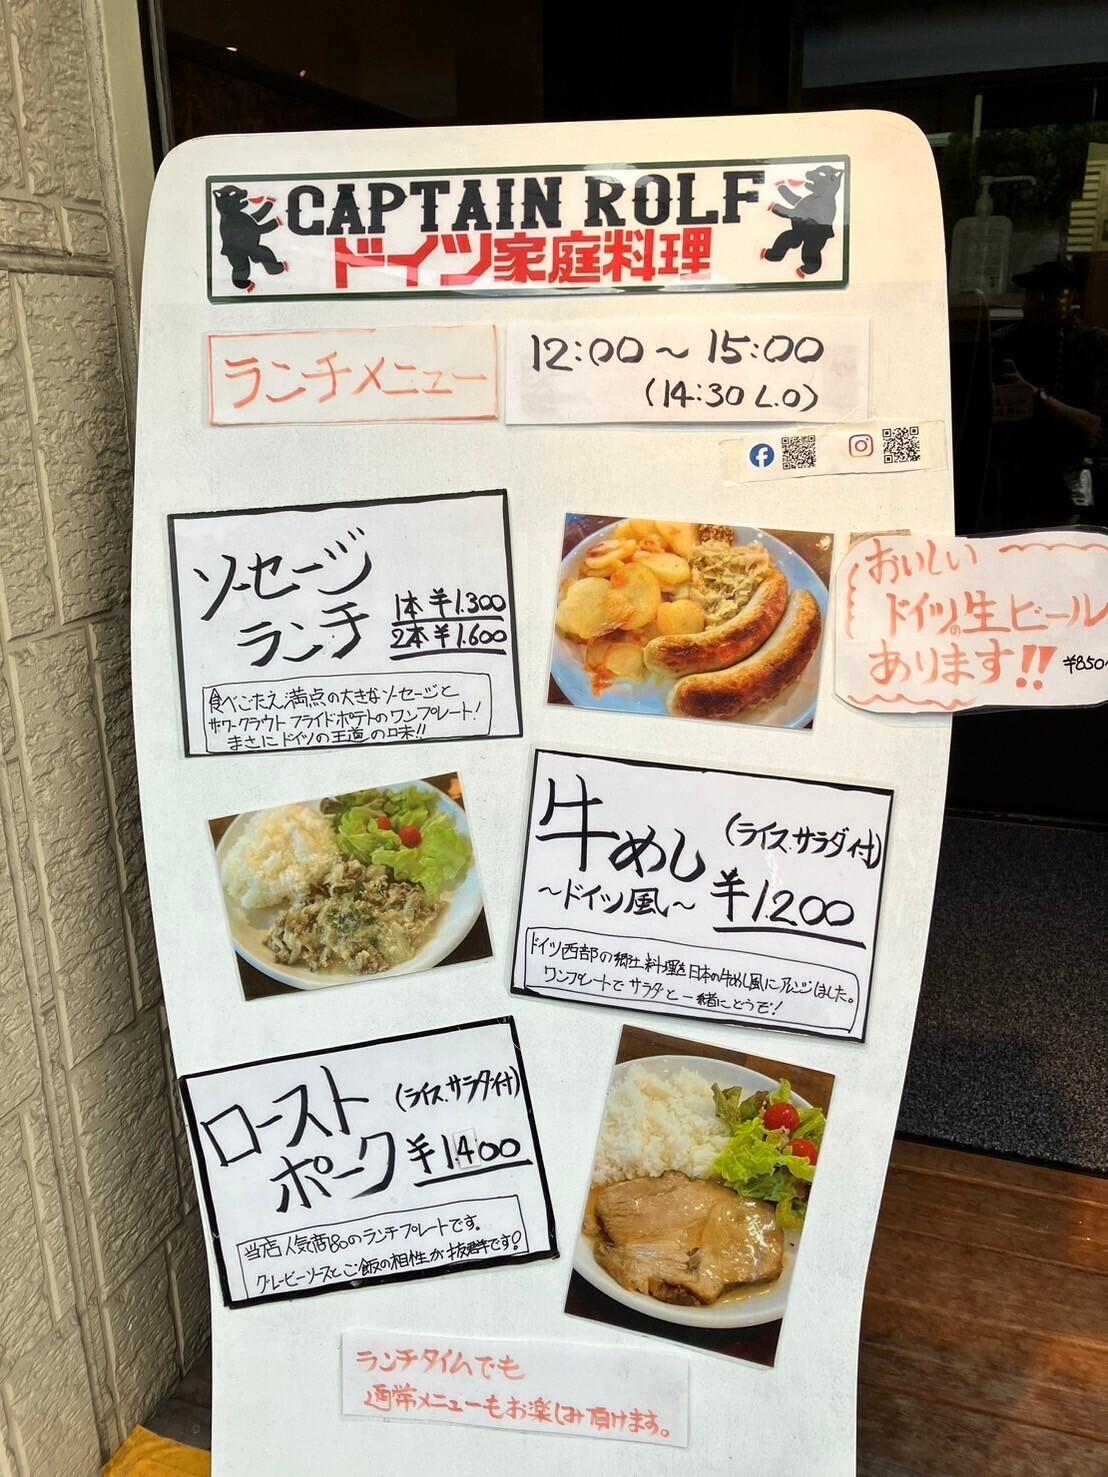 CAPTAIN ROLF
ドイツ家庭料理
ランチメニュー
12:00～15:00
(14:30 L.O)
ソーセージ
ランチ
1本 ¥1.300
2本 ¥1.600
食べごたえ満点の大きなソーセージと
サワークラウト フライドポテトのワンプレート!
まさにドイツの王道の味!!
おいしい
ドイツの生ビール
あります!!
¥850～
牛めし
(ライス.サラダ付)
～ドイツ風～
¥1200
ドイツ西部の郷土料理を日本の牛めし風にアレンジしました。
ワンプレートでサラダと一緒にどうぞ!
ロースト
ポーク
(ライス.サラダ付)
¥1400
当店人気商品のランチプレートです。
グレービーソースとご飯の相性が抜群です!
ランチタイムでも
通常メニューもお楽しみ頂けます。